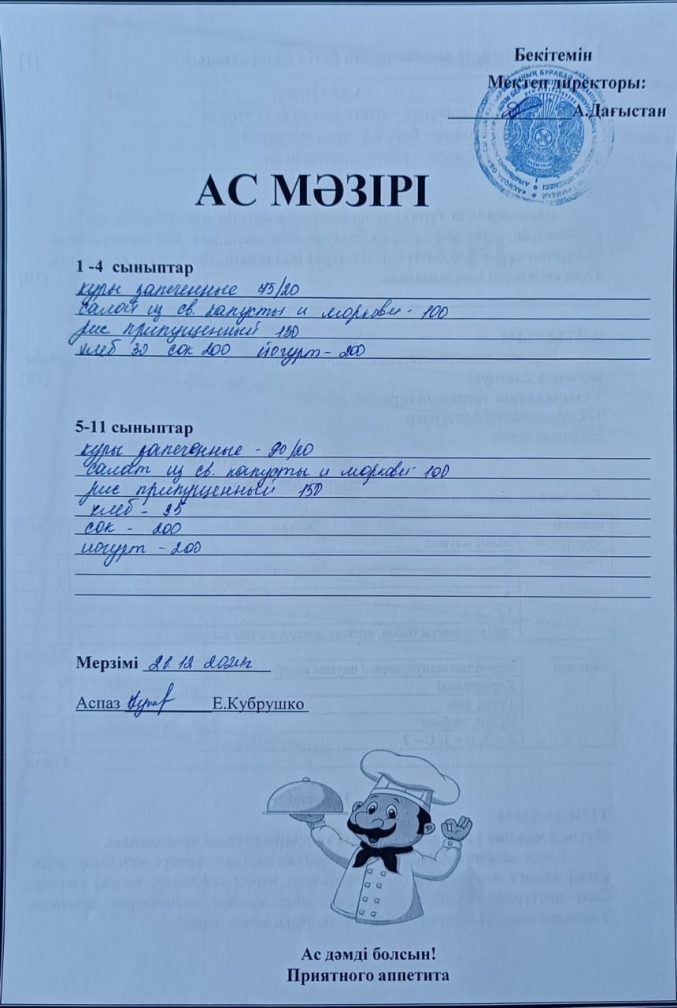 Бекітемін
Мектеп директоры:
А.Дағыстан
АС МӘЗІРІ
1 -4 сыныптар
куры запеченные 75/20
салат из св. капусты и моркови - 100
рис припущенный 130
хлеб 30 сок 200 йогурт - 200
5-11 сыныптар
куры запеченные - 90/20
салат из св. капусты и моркови 100
рис припущенный 150
хлеб - 35
сок - 200
йогурт - 200
Мерзімі 20.12 2024
Аспаз Е.Кубрушко
Ас дәмді болсын!
Приятного аппетита